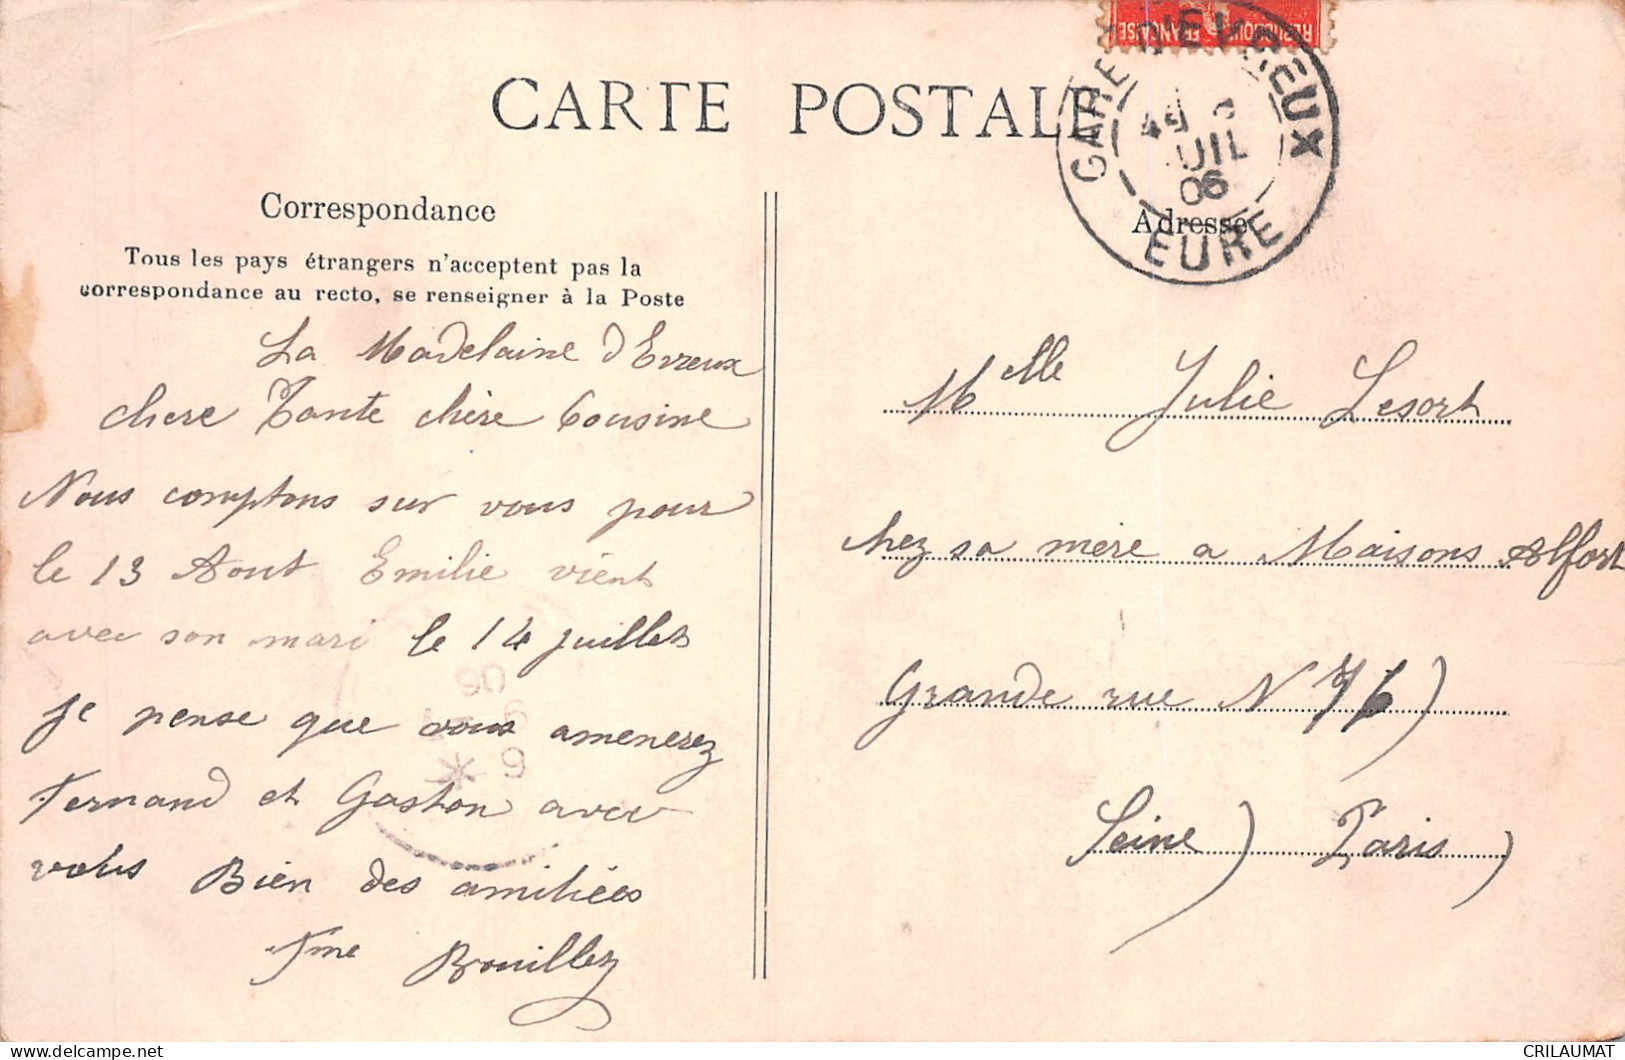 REPUBLIQUE FRANÇAISE
GARE D'EVREUX
JUIL
06
EURE
CARTE POSTALE
Correspondance
Tous les pays étrangers n'acceptent pas la
correspondance au recto, se renseigner à la Poste
La Madelaine d'Evreux
chere Tante chère Cousine
Nous comptons sur vous pour
le 13 Aout Emilie vient
avec son mari le 14 juillet
je pense que vous amenerez
Fernand et Gaston avec
vous Bien des amitiées
Fme Bouillez
Adresse
Melle Julie Lesort
chez sa mère a Maisons Alfort
Grande rue N 76)
Seine) Paris)
CRILAUMAT